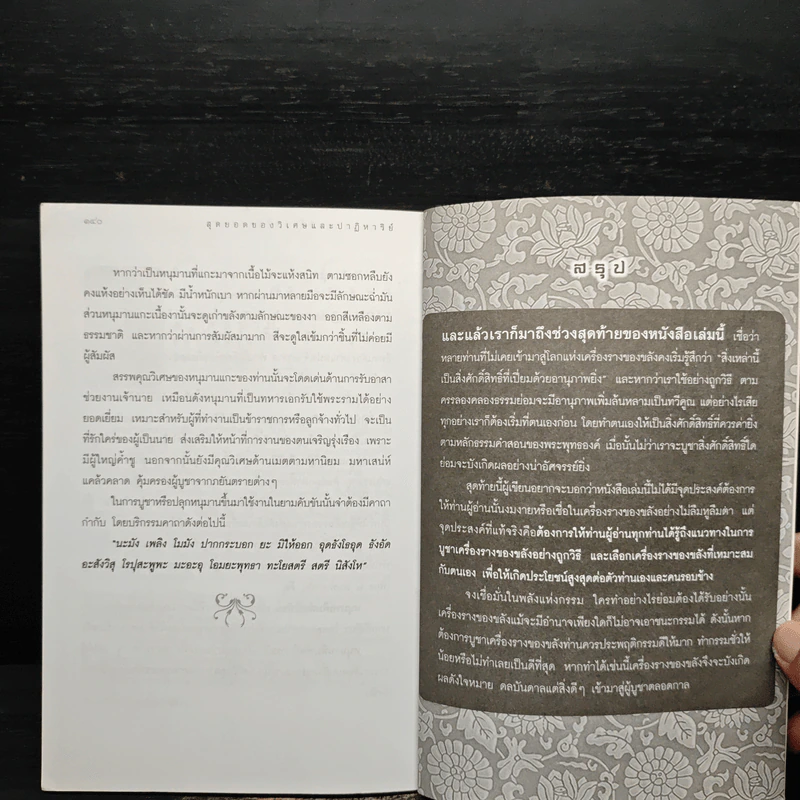 ๑๔๖
สุดยอดของวิเศษและปาฏิหาริย์
หากว่าเป็นหนุมานที่แกะมาจากเนื้อไม้จะแห้งสนิท ตามซอกหลืบยัง
คงแห้งอย่างเห็นได้ชัด มีน้ำหนักเบา หากผ่านมาหลายมือจะมีลักษณะฉ่ำมัน
ส่วนหนุมานแกะเนื้องานั้นจะดูเก่าขลังตามลักษณะของงา ออกสีเหลืองตาม
ธรรมชาติ และหากว่าผ่านการสัมผัสมามาก สีจะดูใสเข้มกว่าชิ้นที่ไม่ค่อยมี
ผู้สัมผัส
สรรพคุณวิเศษของหนุมานแกะของท่านนั้นจะโดดเด่นด้านการรับอาสา
ช่วยงานเจ้านาย เหมือนดังหนุมานที่เป็นทหารเอกรับใช้พระรามได้อย่าง
ยอดเยี่ยม เหมาะสำหรับผู้ที่ทำงานเป็นข้าราชการหรือลูกจ้างทั่วไป จะเป็น
ที่รักใคร่ของผู้เป็นนาย ส่งเสริมให้หน้าที่การงานของตนเจริญรุ่งเรือง เพราะ
มีผู้ใหญ่ค้ำชู นอกจากนั้นยังมีคุณวิเศษด้านเมตตามหานิยม มหาเสน่ห์
แคล้วคลาด คุ้มครองผู้บูชาจากภยันตรายต่างๆ
ในการบูชาหรือปลุกหนุมานขึ้นมาใช้งานในยามคับขันนั้นจำต้องมีคาถา
กำกับ โดยบริกรรมคาถาดังต่อไปนี้
"นะมัง เพลิง โมมัง ปากกระบอก ยะ มิให้ออก อุดธังโธอุด ธังอัด
อะสังวิสุ โรปุสะพูพะ มะอะอุ โอมยะพุทธา ทะโยสตรี สตรี นิสังโห"
สรุป
และแล้วเราก็มาถึงช่วงสุดท้ายของหนังสือเล่มนี้ เชื่อว่า
หลายท่านที่ไม่เคยเข้ามาสู่โลกแห่งเครื่องรางของขลังคงเริ่มรู้สึกว่า "สิ่งเหล่านี้
เป็นสิ่งศักดิ์สิทธิ์ที่เปี่ยมด้วยอานุภาพยิ่ง" และหากว่าเราใช้อย่างถูกวิธี ตาม
ครรลองคลองธรรมย่อมจะมีอานุภาพเพิ่มล้นหลามเป็นทวีคูณ แต่อย่างไรเสีย
ทุกอย่างเราก็ต้องเริ่มที่ตนเองก่อน โดยทำตนเองให้เป็นสิ่งศักดิ์สิทธิ์ที่ควรค่ายิ่ง
ตามหลักธรรมคำสอนของพระพุทธองค์ เมื่อนั้นไม่ว่าเราจะบูชาสิ่งศักดิ์สิทธิ์ใด
ย่อมจะบังเกิดผลอย่างน่าอัศจรรย์ยิ่ง
สุดท้ายนี้ผู้เขียนอยากจะบอกว่าหนังสือเล่มนี้ไม่ได้มีจุดประสงค์ต้องการ
ให้ท่านผู้อ่านนั้นงมงายหรือเชื่อในเครื่องรางของขลังอย่างไม่ลืมหูลืมตา แต่
จุดประสงค์ที่แท้จริงคือต้องการให้ท่านผู้อ่านทุกท่านได้รู้ถึงแนวทางในการ
บูชาเครื่องรางของขลังอย่างถูกวิธี และเลือกเครื่องรางของขลังที่เหมาะสม
กับตนเอง เพื่อให้เกิดประโยชน์สูงสุดต่อตัวท่านเองและคนรอบข้าง
จงเชื่อมั่นในพลังแห่งกรรม ใครทำอย่างไรย่อมต้องได้รับอย่างนั้น
เครื่องรางของขลังแม้จะมีอำนาจเพียงใดก็ไม่อาจเอาชนะกรรมได้ ดังนั้นหาก
ต้องการบูชาเครื่องรางของขลังท่านควรประพฤติกรรมดีให้มาก ทำกรรมชั่วให้
น้อยหรือไม่ทำเลยเป็นดีที่สุด หากทำได้เช่นนี้เครื่องรางของขลังจึงจะบังเกิด
ผลดังใจหมาย ดลบันดาลแต่สิ่งดีๆ เข้ามาสู่ผู้บูชาตลอดกาล